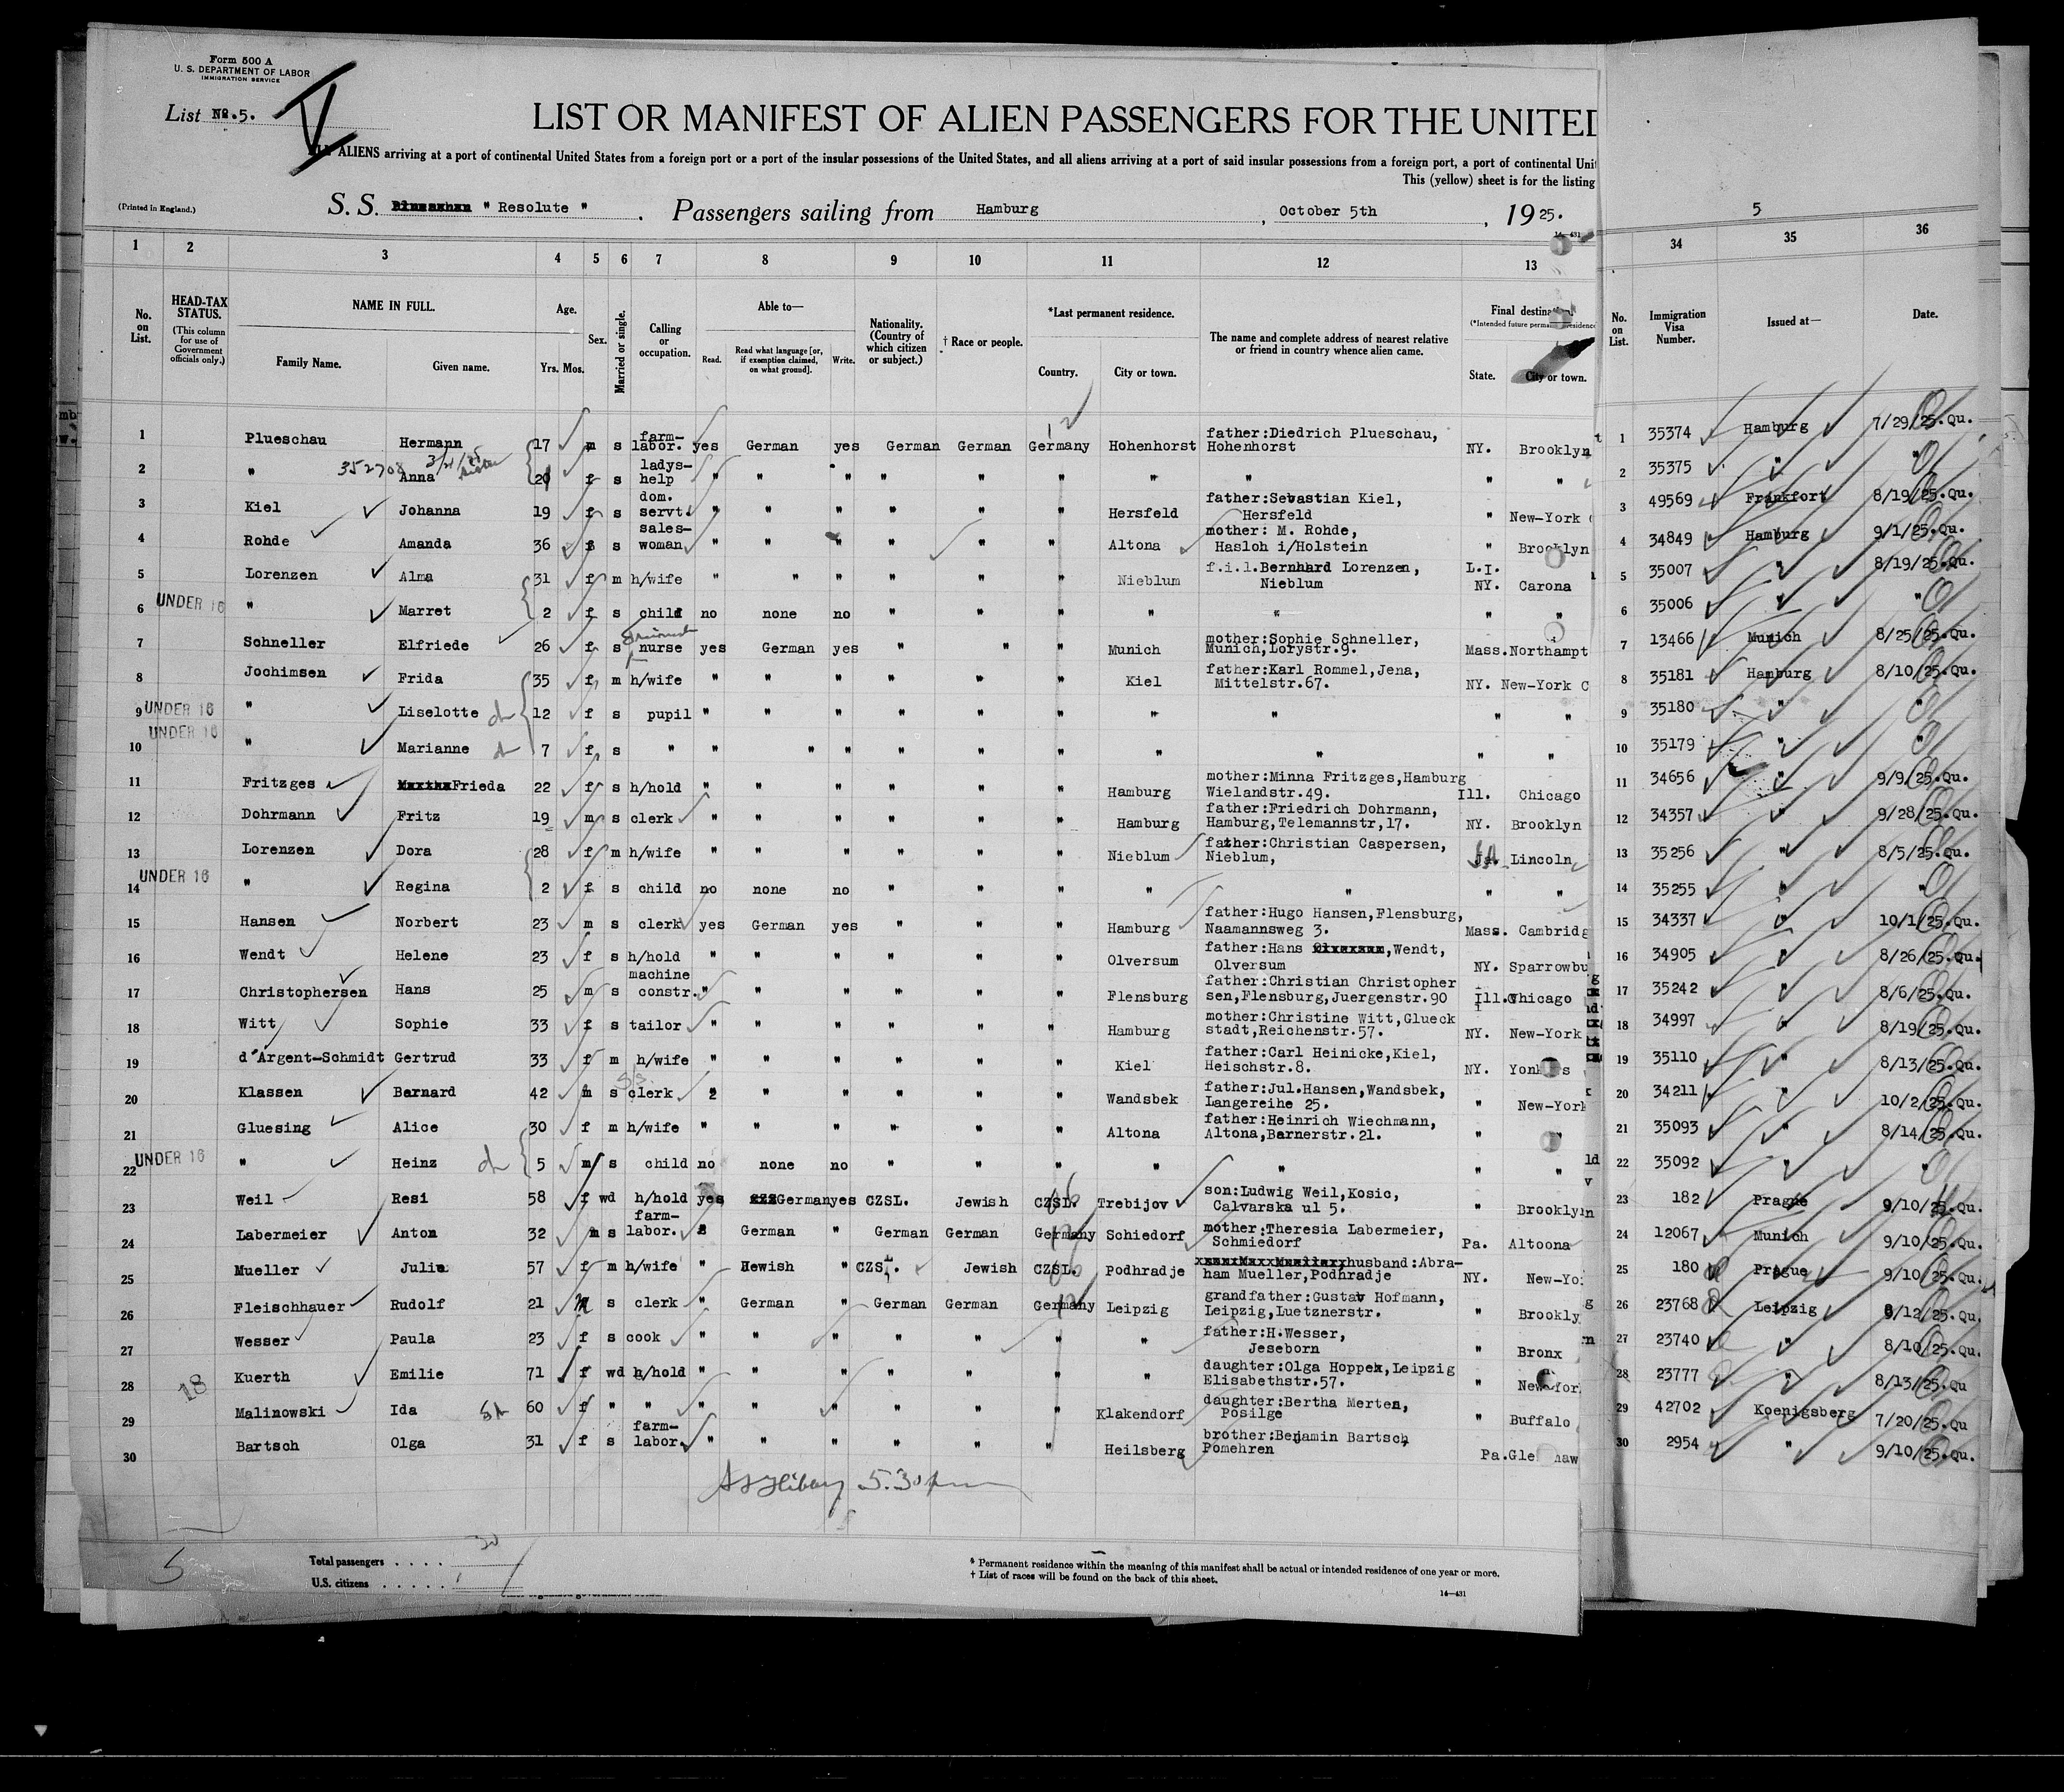 Form 500 A
U. S. DEPARTMENT OF LABOR
IMMIGRATION SERVICE
List No. 5.
V
LIST OR MANIFEST OF ALIEN PASSENGERS FOR THE UNITED
ALL ALIENS arriving at a port of continental United States from a foreign port or a port of the insular possessions of the United States, and all aliens arriving at a port of said insular possessions from a foreign port, a port of continental Uni
This (yellow) sheet is for the listing
(Printed in England.)
S. S. " Resolute " . Passengers sailing from Hamburg , October 5th , 19 25.
14—431
5
1 2 3 4 5 6 7 8 9 10 11 12 13 34 35 36
No. on List. HEAD-TAX STATUS. (This column for use of Government officials only.) NAME IN FULL. Family Name. Given name. Age. Yrs. Mos. Sex. Married or single. Calling or occupation. Able to— Read. Read what language [or, if exemption claimed, on what ground]. Write. Nationality. (Country of which citizen or subject.) † Race or people. *Last permanent residence. Country. City or town. The name and complete address of nearest relative or friend in country whence alien came. Final destination (*Intended future permanent residence State. City or town. No. on List. Immigration Visa Number. Issued at— Date.
1 Plueschau Hermann 17 m s farm-labor. yes German yes German German Germany Hohenhorst father:Diedrich Plueschau, Hohenhorst NY. Brooklyn 1 35374 Hamburg 7/29/25.Qu.
2 " 352708 3/21/25 sister Anna 20 f s ladys-help " " " " " " " " " " 2 35375 " "
3 Kiel Johanna 19 f s dom. servt. " " " " " " Hersfeld father:Sebastian Kiel, Hersfeld " New-York 3 49569 Frankfort 8/19/25.Qu.
4 Rohde Amanda 36 f s sales-woman " " " " " " Altona mother: M. Rohde, Hasloh i/Holstein " Brooklyn 4 34849 Hamburg 9/1/25.Qu.
5 Lorenzen Alma 31 f m h/wife " " " " " " Nieblum f.i.l.Bernhard Lorenzen, Nieblum L.I. NY. Carona 5 35007 " 8/19/25.Qu.
6 UNDER 16 " Marret 2 f s child no none no " " " " " " " 6 35006 " "
7 Schneller Elfriede 26 f s nurse yes German yes " " " Munich mother:Sophie Schneller, Munich,Lorystr.9. Mass. Northampt 7 13466 Munich 8/25/25.Qu.
8 Jochimsen Frida 35 f m h/wife " " " " " " Kiel father:Karl Rommel,Jena, Mittelstr.67. NY. New-York C 8 35181 Hamburg 8/10/25.Qu.
9 UNDER 16 " Liselotte ch 12 f s pupil " " " " " " " " " " 9 35180 " "
10 UNDER 16 " Marianne ch 7 f s " " " " " " " " " " " 10 35179 " "
11 Fritzges Frieda 22 f s h/hold " " " " " " Hamburg mother:Minna Fritzges,Hamburg Wielandstr.49. Ill. Chicago 11 34656 " 9/9/25.Qu.
12 Dohrmann Fritz 19 m s clerk " " " " " " Hamburg father:Friedrich Dohrmann, Hamburg,Telemannstr,17. NY. Brooklyn 12 34357 " 9/28/25.Qu.
13 Lorenzen Dora 28 f m h/wife " " " " " " Nieblum father:Christian Caspersen, Nieblum, Lincoln 13 35256 " 8/5/25.Qu.
14 UNDER 16 " Regina 2 f s child no none no " " " " " " " 14 35255 " "
15 Hansen Norbert 23 m s clerk yes German yes " " " Hamburg father:Hugo Hansen,Flensburg, Naamannsweg 3. Mass. Cambridg 15 34337 " 10/1/25.Qu.
16 Wendt Helene 23 f s h/hold " " " " " " Olversum father:Hans Wendt, Olversum NY. Sparrowbu 16 34905 " 8/26/25.Qu.
17 Christophersen Hans 25 m s machine constr. " " " " " " Flensburg father:Christian Christopher sen,Flensburg,Juergenstr.90 Ill. Chicago 17 35242 " 8/6/25.Qu.
18 Witt Sophie 33 f s tailor " " " " " " Hamburg mother:Christine Witt,Glueck stadt,Reichenstr.57. NY. New-York 18 34997 " 8/19/25.Qu.
19 d'Argent-Schmidt Gertrud 33 f m h/wife " " " " " " Kiel father:Carl Heinicke,Kiel, Heischstr.8. NY. Yonkers 19 35110 " 8/13/25.Qu.
20 Klassen Barnard 42 m s clerk 2 " " " " " Wandsbek father:Jul.Hansen,Wandsbek, Langereihe 25. " New-York 20 34211 " 10/2/25.Qu.
21 Gluesing Alice 30 f m h/wife " " " " " " Altona father:Heinrich Wiechmann, Altona,Barnerstr.21. " " 21 35093 " 8/14/25.Qu.
22 UNDER 16 " Heinz ch 5 m s child no none no " " " " " " " 22 35092 " "
23 Weil Resi 58 f wd h/hold yes German yes CZSL. Jewish CZSL. Trebijov son:Ludwig Weil,Kosic, Calvarska ul 5. " Brooklyn 23 182 Prague 9/10/25.Qu.
24 Labermeier Anton 32 m s farm-labor. German " German German Germany Schiedorf mother:Theresia Labermeier, Schmiedorf Pa. Altoona 24 12067 Munich 9/10/25.Qu.
25 Mueller Julie 57 f m h/wife " Hewish " CZSL. Jewish CZSL. Podhradje husband:Abra-ham Mueller,Podhradje NY. New-Yo 25 180 Prague 9/10/25.Qu.
26 Fleischhauer Rudolf 21 m s clerk " German " German German Germany Leipzig grandfather:Gustav Hofmann, Leipzig,Luetznerstr. " Brookly 26 23768 Leipzig 8/12/25.Qu.
27 Wesser Paula 23 f s cook " " " " " " " father:H.Wesser, Jeseborn " Bronx 27 23740 " 8/10/25.Qu.
28 18 Kuerth Emilie 71 f wd h/hold " " " " " " " daughter:Olga Hoppe,Leipzig Elisabethstr.57. " New-York 28 23777 " 8/13/25.Qu
29 Malinowski Ida 60 f " " " " " " " " Klakendorf daughter:Bertha Merten, Posilge " Buffalo 29 42702 Koenigsberg 7/20/25.Qu
30 Bartsch Olga 31 f s farm-labor. " " " " " " Heilsberg brother:Benjamin Bartsch, Pomehren Pa. 30 2954 " 9/10/25.Qu.
5.30 pm
5
Total passengers . . . . 30
U.S. citizens . . . . .
* Permanent residence within the meaning of this manifest shall be actual or intended residence of one year or more.
† List of races will be found on the back of this sheet.
14—431